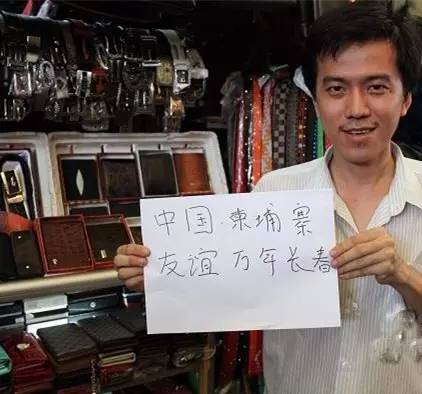 中国·柬埔寨
友谊万年长春